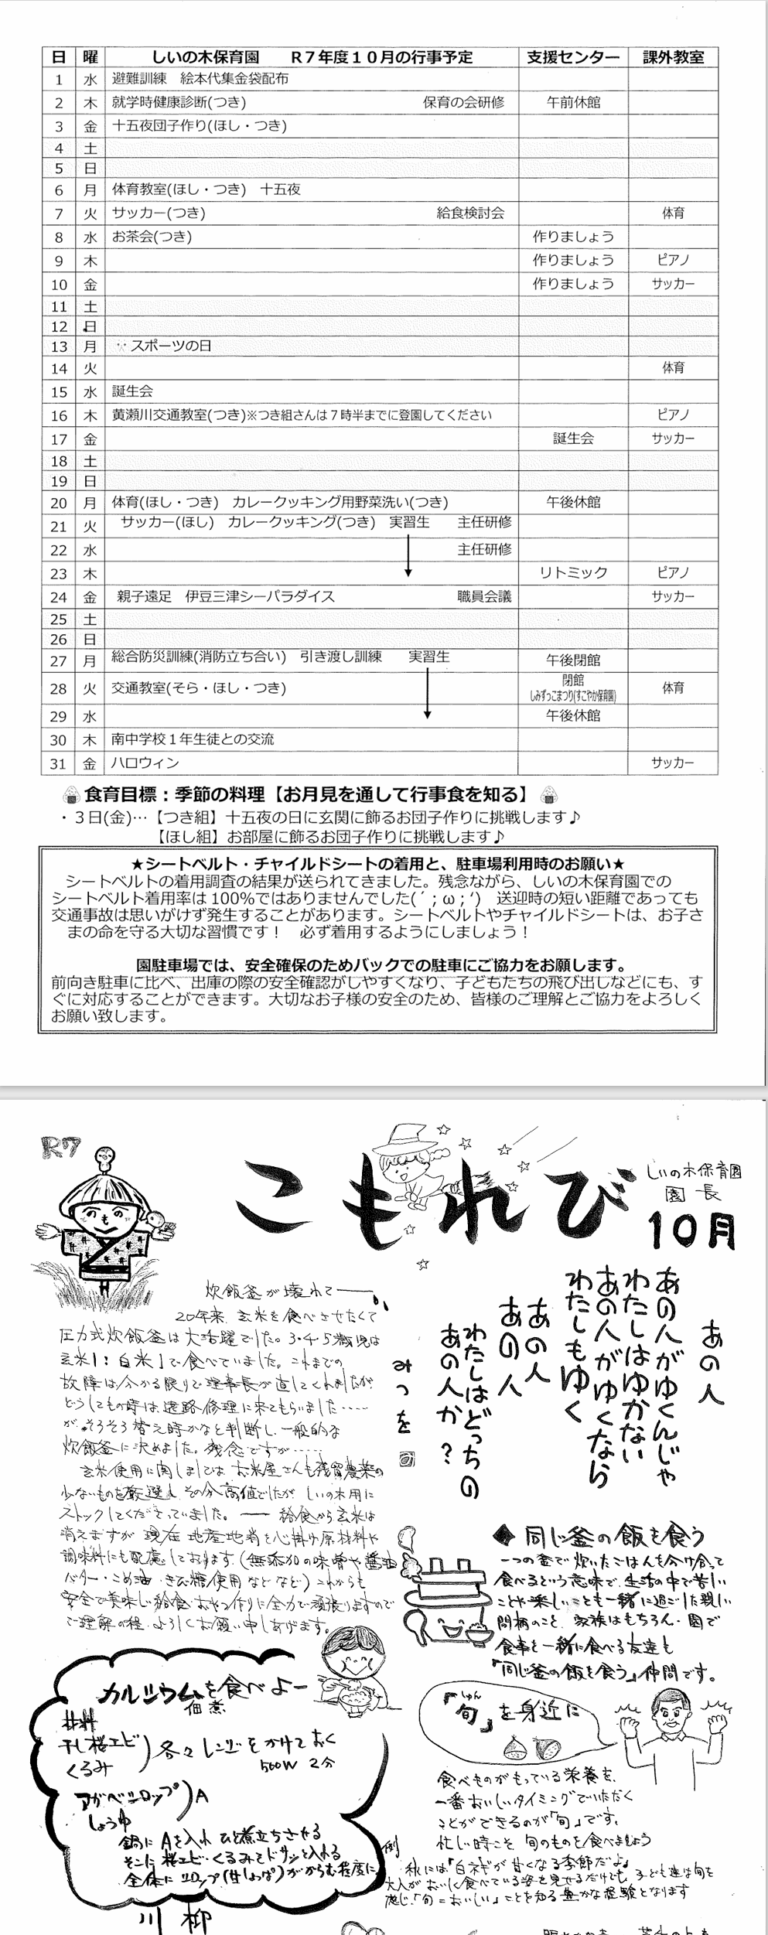 日 曜 しいの木保育園 R7年度10月の行事予定 支援センター 課外教室
1 水 避難訓練 絵本代集金袋配布
2 木 就学時健康診断(つき) 保育の会研修 午前休館
3 金 十五夜団子作り(ほし・つき)
4 土
5 日
6 月 体育教室(ほし・つき) 十五夜
7 火 サッカー(つき) 給食検討会 体育
8 水 お茶会(つき) 作りましょう
9 木 作りましょう ピアノ
10 金 作りましょう サッカー
11 土
12 日
13 月 スポーツの日
14 火 体育
15 水 誕生会
16 木 黄瀬川交通教室(つき)※つき組さんは7時半までに登園してください ピアノ
17 金 誕生会 サッカー
18 土
19 日
20 月 体育(ほし・つき) カレークッキング用野菜洗い(つき) 午後休館
21 火 サッカー(ほし) カレークッキング(つき) 実習生 主任研修
22 水 主任研修
23 木 リトミック ピアノ
24 金 親子遠足 伊豆三津シーパラダイス 職員会議 サッカー
25 土
26 日
27 月 総合防災訓練(消防立ち合い) 引き渡し訓練 実習生 午後閉館
28 火 交通教室(そら・ほし・つき) 閉館 しみずっこまつり(すこやか保育園) 体育
29 水 午後休館
30 木 南中学校1年生徒との交流
31 金 ハロウィン サッカー
食育目標：季節の料理【お月見を通して行事食を知る】
・3日(金)…【つき組】十五夜の日に玄関に飾るお団子作りに挑戦します♪
【ほし組】お部屋に飾るお団子作りに挑戦します♪
★シートベルト・チャイルドシートの着用と、駐車場利用時のお願い★
シートベルトの着用調査の結果が送られてきました。残念ながら、しいの木保育園での
シートベルト着用率は100%ではありませんでした(´；ω；‘) 送迎時の短い距離であっても
交通事故は思いがけず発生することがあります。シートベルトやチャイルドシートは、お子さ
まの命を守る大切な習慣です！ 必ず着用するようにしましょう！
園駐車場では、安全確保のためバックでの駐車にご協力をお願します。
前向き駐車に比べ、出庫の際の安全確認がしやすくなり、子どもたちの飛び出しなどにも、す
ぐに対応することができます。大切なお子様の安全のため、皆様のご理解とご協力をよろしく
お願い致します。
R7
こもれび
しいの木保育園
園長
10月
あの人
あの人がゆくんじゃ
わたしはゆかない
あの人がゆくなら
わたしもゆく
あの人
あの人
わたしはどっちの
あの人か？
みつを
炊飯釜が壊れて――
20年来、玄米を食べさせたくて
圧力式炊飯釜は大活躍でした。3・4・5歳児は
玄米1：白米1で食べていました。これまでの
故障は分かる限りで理事長が直してくれましたが
どうしてもの時は遠路修理に来てもらいました……
が、そろそろ替え時かなと判断し、一般的な
炊飯釜に決めました。残念ですが……
玄米使用に関しましては お米屋さんも残留農薬の
少ないものを厳選し その分高価でしたが しいの木用に
ストックしてくださっていました。 ― 給食から玄米は
消えますが 現在 地産地消を心掛け原材料や
調味料にも配慮しております(無添加の味噌や醤油
バター・こめ油・きび糖使用などなど)これからも
安全で美味しい給食・おやつ作りに全力で頑張りますので
ご理解の程、よろしくお願い申しあげます。
◆同じ釜の飯を食う
一つの釜で炊いたごはんを分け合って
食べるという意味で、生活の中で苦しい
ことや楽しいことも一緒に過ごした親しい
間柄のこと。家族はもちろん・園で
食事を一緒に食べる友達も
「同じ釜の飯を食う」仲間です。
カルシウムを食べよー
佃煮
材料
干し桜エビ
くるみ
各々レンジをかけておく
500W 2分
しょうゆ
A
鍋にAを入れ ひと煮立ちさせる
そこに桜エビ・くるみをドサッと入れる
全体にシロップ(甘じょっぱ)がからむ程度に
「旬」を身近に
しゅん
食べものがもっている栄養を、
一番おいしいタイミングでいただく
ことができるのが「旬」です。
忙しい時こそ 旬のものを食べましょう
例 秋には「白ネギが甘くなる季節だよ」
大人がおいしく食べている姿を見せるだけでも、子ども達は旬を
感じ、「旬＝おいしい」ことを知る豊かな経験となります
川柳